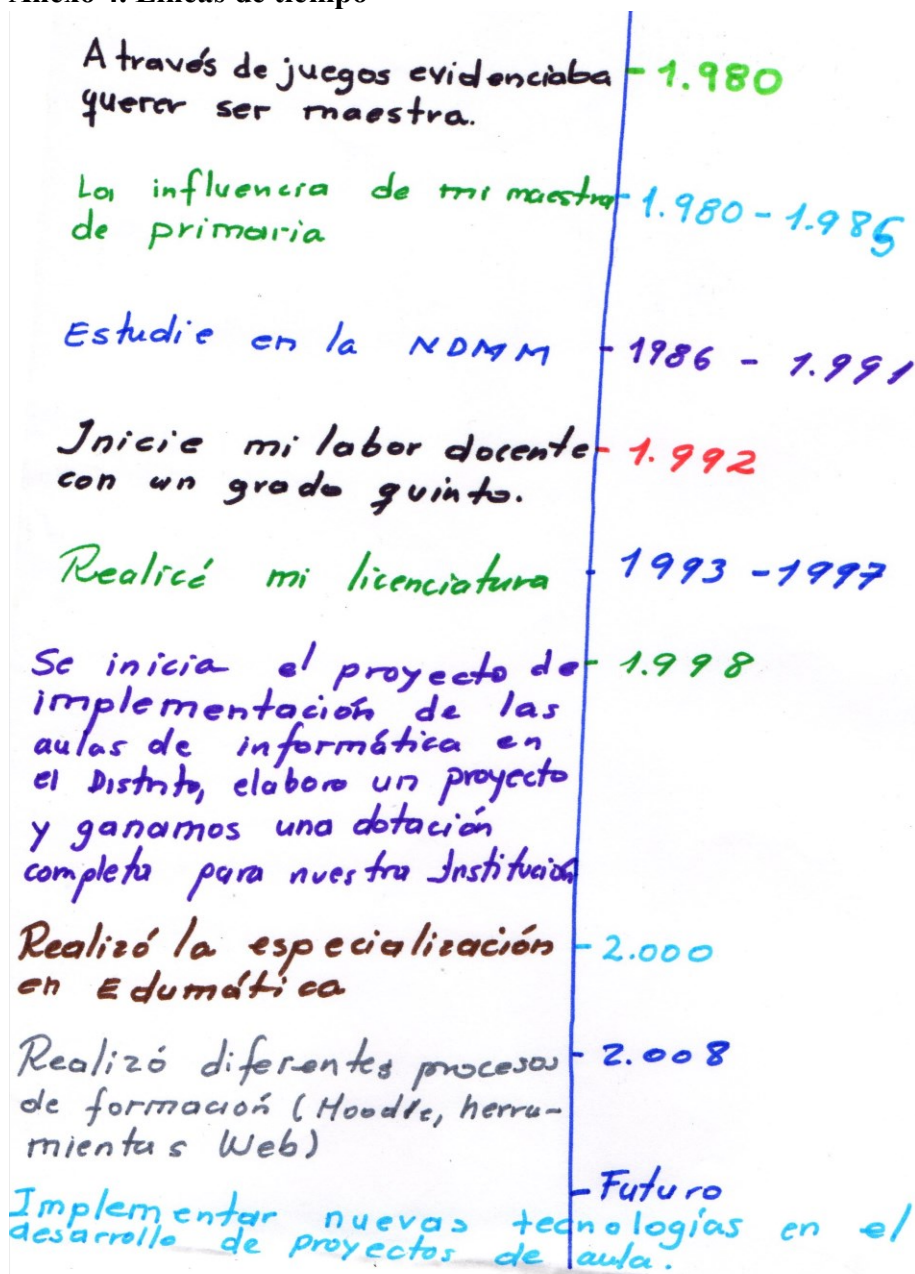 Anexo 4. Líneas de tiempo
A través de juegos evidenciaba - 1.980
querer ser maestra.
La influencia de mi maestra - 1.980 - 1.985
de primaria
Estudie en la NDMM - 1986 - 1.991
Inicie mi labor docente - 1.992
con un grado quinto.
Realicé mi licenciatura - 1993 - 1997
Se inicia el proyecto de - 1.998
implementación de las
aulas de informática en
el Distrito, elaboro un proyecto
y ganamos una dotación
completa para nuestra Institución
Realizó la especialización - 2.000
en Edumática
Realizó diferentes procesos - 2.008
de formación (Moodle, herra-
mientas Web)
- Futuro
Implementar nuevas tecnologías en el
desarrollo de proyectos de aula.